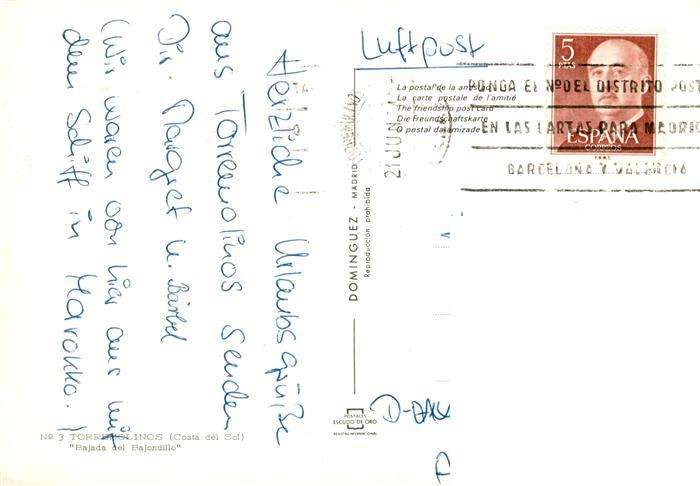 Herzliche Urlaubsgrüße
aus Torremolinos senden
Dir Margret u. Bärbel
(Wir waren von hier aus mit
dem Schiff in Marokko.)
Luftpost
La postal de la amistad
La carte postale de l'amitié
The friendship post card
Die Freundschaftskarte
O postal da amizade
5
PTAS
ESPAÑA
CORREOS
PONGA EL Nº DEL DISTRITO POST
EN LAS CARTAS PARA MADRID
BARCELONA Y VALENCIA
21 JUN
DOMINGUEZ - MADRID
Reproducción prohibida
POSTALES
ESCUDO DE ORO
REGISTRO INTERNACIONAL
NR 3 TORREMOLINOS (Costa del Sol)
"Bajada del Bajondillo"